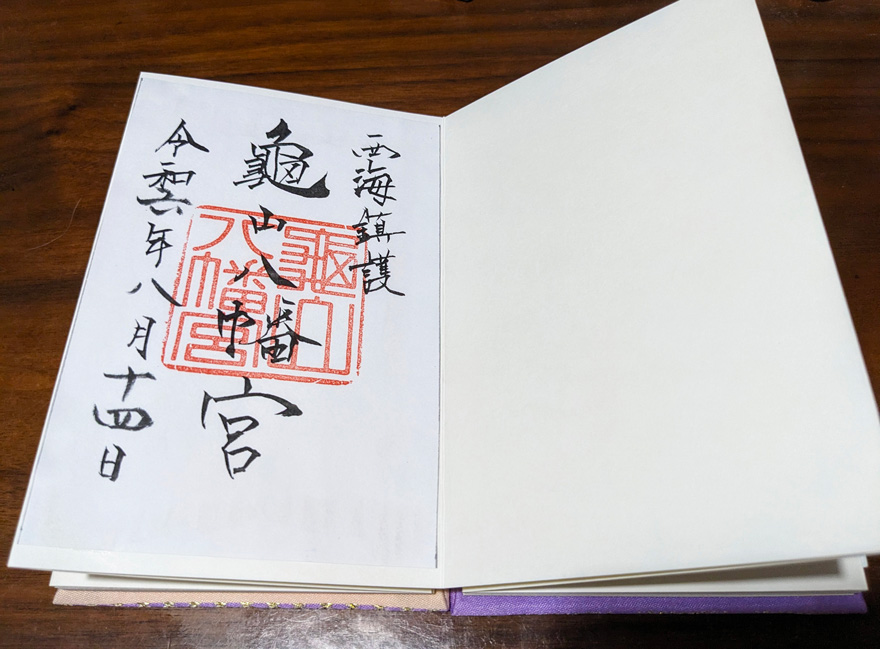 西海鎮護
龜山八幡宮
龜山八幡宮
令和六年八月十四日